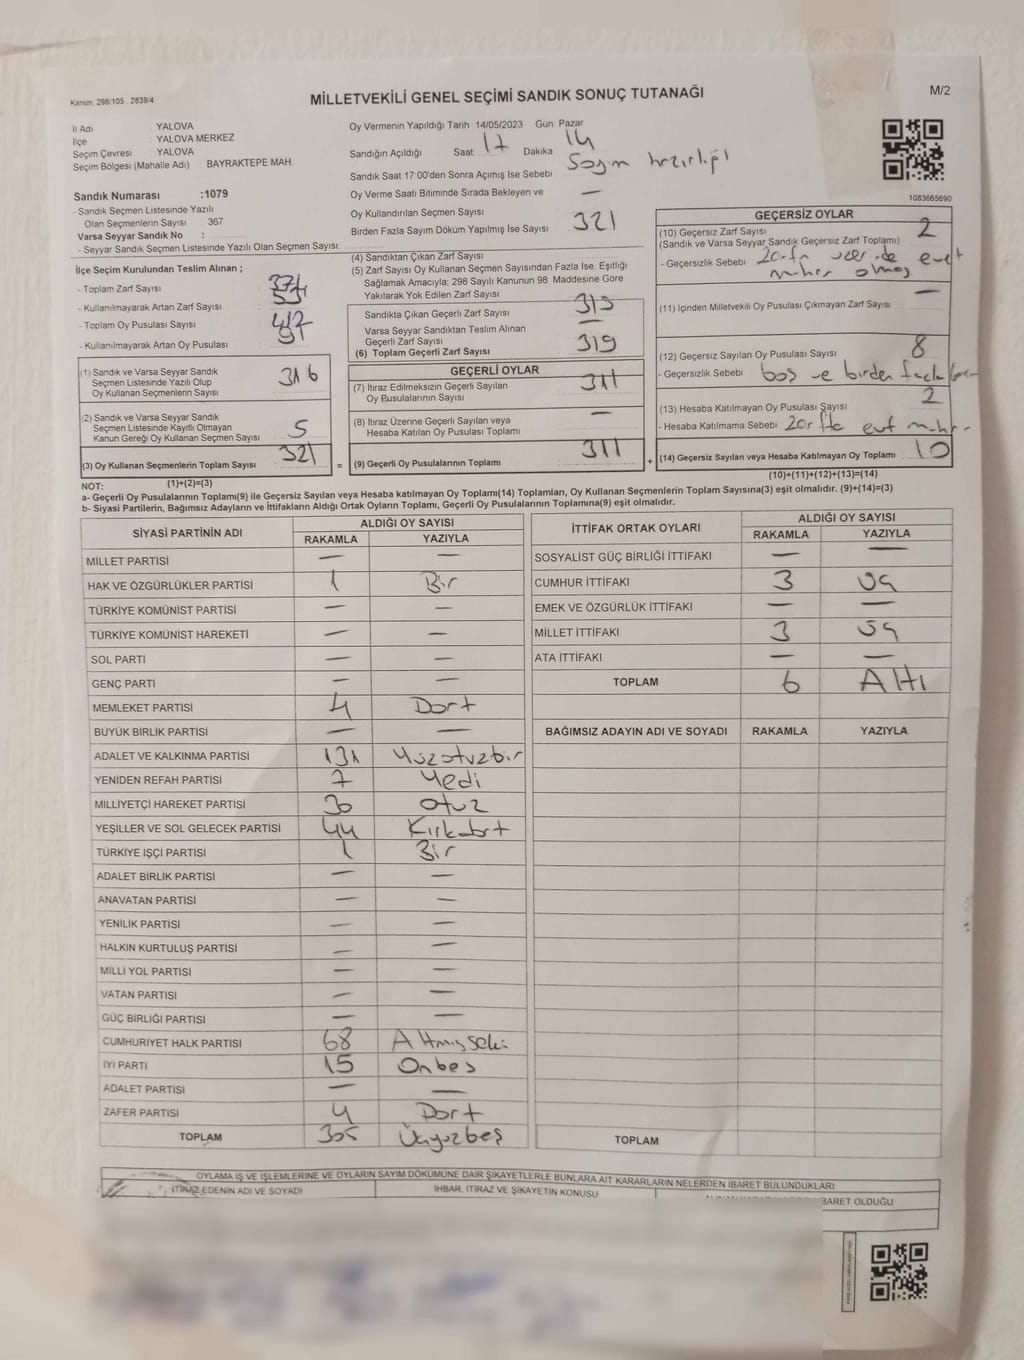 Kanun: 298/105 , 2839/4
MİLLETVEKİLİ GENEL SEÇİMİ SANDIK SONUÇ TUTANAĞI
M/2
İl Adı YALOVA
İlçe YALOVA MERKEZ
Seçim Çevresi YALOVA
Seçim Bölgesi (Mahalle Adı) BAYRAKTEPE MAH
Sandık Numarası :1079
- Sandık Seçmen Listesinde Yazılı
Olan Seçmenlerin Sayısı : 367
Varsa Seyyar Sandık No :
- Seyyar Sandık Seçmen Listesinde Yazılı Olan Seçmen Sayısı:
İlçe Seçim Kurulundan Teslim Alınan ;
- Toplam Zarf Sayısı
- Kullanılmayarak Artan Zarf Sayısı
- Toplam Oy Pusulası Sayısı
- Kullanılmayarak Artan Oy Pusulası 91
(1) Sandık ve Varsa Seyyar Sandık
Seçmen Listesinde Yazılı Olup
Oy Kullanan Seçmenlerin Sayısı 316
(2) Sandık ve Varsa Seyyar Sandık
Seçmen Listesinde Kayıtlı Olmayan
Kanun Gereği Oy Kullanan Seçmen Sayısı 5
(3) Oy Kullanan Seçmenlerin Toplam Sayısı 321
(1)+(2)=(3)
Oy Vermenin Yapıldığı Tarih 14/05/2023 Gün: Pazar
Sandığın Açıldığı Saat 17 Dakika 14
Sandık Saat 17:00'den Sonra Açımış İse Sebebi Sayım hazırlığı
Oy Verme Saati Bitiminde Sırada Bekleyen ve
Oy Kullandırılan Seçmen Sayısı —
Birden Fazla Sayım Döküm Yapılmış İse Sayısı
(4) Sandıktan Çıkan Zarf Sayısı 321
(5) Zarf Sayısı Oy Kullanan Seçmen Sayısından Fazla İse: Eşitliği
Sağlamak Amacıyla; 298 Sayılı Kanunun 98. Maddesine Göre
Yakılarak Yok Edilen Zarf Sayısı
Sandıkta Çıkan Geçerli Zarf Sayısı 319
Varsa Seyyar Sandıktan Teslim Alınan
Geçerli Zarf Sayısı —
(6) Toplam Geçerli Zarf Sayısı 319
GEÇERLİ OYLAR
(7) İtiraz Edilmeksizin Geçerli Sayılan
Oy Pusulalarının Sayısı 311
(8) İtiraz Üzerine Geçerli Sayılan veya
Hesaba Katılan Oy Pusulası Toplamı —
= (9) Geçerli Oy Pusulalarının Toplamı 311 +
1083665690
GEÇERSİZ OYLAR
(10) Geçersiz Zarf Sayısı 2
(Sandık ve Varsa Seyyar Sandık Geçersiz Zarf Toplamı)
- Geçersizlik Sebebi zarfın üzerinde evet
mührü olması
(11) İçinden Milletvekili Oy Pusulası Çıkmayan Zarf Sayısı —
(12) Geçersiz Sayılan Oy Pusulası Sayısı 8
- Geçersizlik Sebebi boş ve birden fazla
(13) Hesaba Katılmayan Oy Pusulası Sayısı 2
- Hesaba Katılmama Sebebi zarfta evet mührü
(14) Geçersiz Sayılan veya Hesaba Katılmayan Oy Toplamı 10
(10)+(11)+(12)+(13)=(14)
NOT:
a- Geçerli Oy Pusulalarının Toplamı(9) ile Geçersiz Sayılan veya Hesaba katılmayan Oy Toplamı(14) Toplamları, Oy Kullanan Seçmenlerin Toplam Sayısına(3) eşit olmalıdır. (9)+(14)=(3)
b- Siyasi Partilerin, Bağımsız Adayların ve İttifakların Aldığı Ortak Oyların Toplamı, Geçerli Oy Pusulalarının Toplamına(9) eşit olmalıdır.
SİYASİ PARTİNİN ADI ALDIĞI OY SAYISI
RAKAMLA YAZIYLA
MİLLET PARTİSİ — —
HAK VE ÖZGÜRLÜKLER PARTİSİ 1 Bir
TÜRKİYE KOMÜNİST PARTİSİ — —
TÜRKİYE KOMÜNİST HAREKETİ — —
SOL PARTİ — —
GENÇ PARTİ — —
MEMLEKET PARTİSİ 4 Dört
BÜYÜK BİRLİK PARTİSİ — —
ADALET VE KALKINMA PARTİSİ 131 Yüzotuzbir
YENİDEN REFAH PARTİSİ 7 Yedi
MİLLİYETÇİ HAREKET PARTİSİ 30 otuz
YEŞİLLER VE SOL GELECEK PARTİSİ 44 Kırkdört
TÜRKİYE İŞÇİ PARTİSİ 1 Bir
ADALET BİRLİK PARTİSİ — —
ANAVATAN PARTİSİ — —
YENİLİK PARTİSİ — —
HALKIN KURTULUŞ PARTİSİ — —
MİLLİ YOL PARTİSİ — —
VATAN PARTİSİ — —
GÜÇ BİRLİĞİ PARTİSİ — —
CUMHURİYET HALK PARTİSİ 68 Altmışsekiz
İYİ PARTİ 15 Onbeş
ADALET PARTİSİ — —
ZAFER PARTİSİ 4 Dört
TOPLAM 305 Üçyüzbeş
İTTİFAK ORTAK OYLARI ALDIĞI OY SAYISI
RAKAMLA YAZIYLA
SOSYALİST GÜÇ BİRLİĞİ İTTİFAKI — —
CUMHUR İTTİFAKI 3 Üç
EMEK VE ÖZGÜRLÜK İTTİFAKI — —
MİLLET İTTİFAKI 3 Üç
ATA İTTİFAKI — —
TOPLAM 6 Altı
BAĞIMSIZ ADAYIN ADI VE SOYADI RAKAMLA YAZIYLA
TOPLAM
OYLAMA İŞ VE İŞLEMLERİNE VE OYLARIN SAYIM DÖKÜMÜNE DAİR ŞİKAYETLERLE BUNLARA AİT KARARLARIN NELERDEN İBARET BULUNDUKLARI
İTİRAZ EDENİN ADI VE SOYADI İHBAR, İTİRAZ VE ŞİKAYETİN KONUSU BARET OLDUĞU